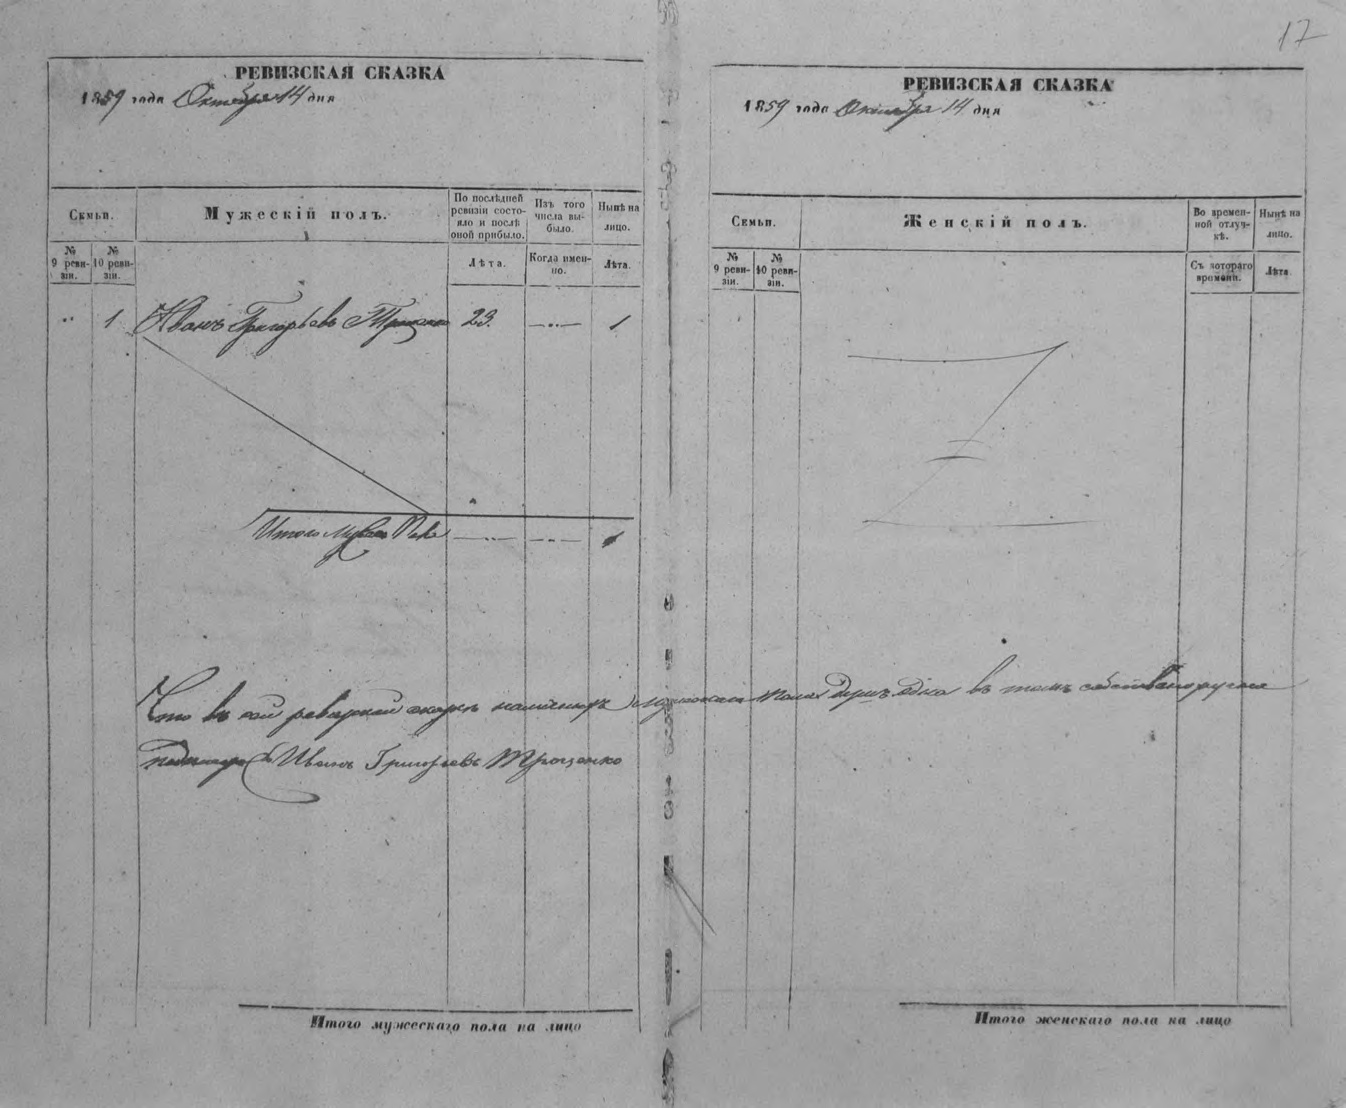 17
РЕВИЗСКАЯ СКАЗКА
1859 года Октября 14 дня
Семьи.
Мужескій полъ.
По послѣдней ревизіи состояло и послѣ оной прибыло.
Изъ того числа выбыло.
Нынѣ на лицо.
№ 9 ревизіи.
№ 10 ревизіи.
Лѣта.
Когда именно.
Лѣта.
" 1 Иванъ Григорьевъ Трощенко 23. — " — 1
Итого муж. Пола — " — — " — 1
Что въ сей ревизкой скаске наличныхъ мужскаго пола душъ одна въ томъ собственоручно
подписуюсь Иванъ Григорьевъ Трощенко
Итого мужескаго пола на лицо
РЕВИЗСКАЯ СКАЗКА
1859 года Октября 14 дня
Семьи.
Женскій полъ.
Во временной отлучкѣ.
Нынѣ на лицо.
№ 9 ревизіи.
№ 10 ревизіи.
Съ котораго времени.
Лѣта
Итого женскаго пола на лицо